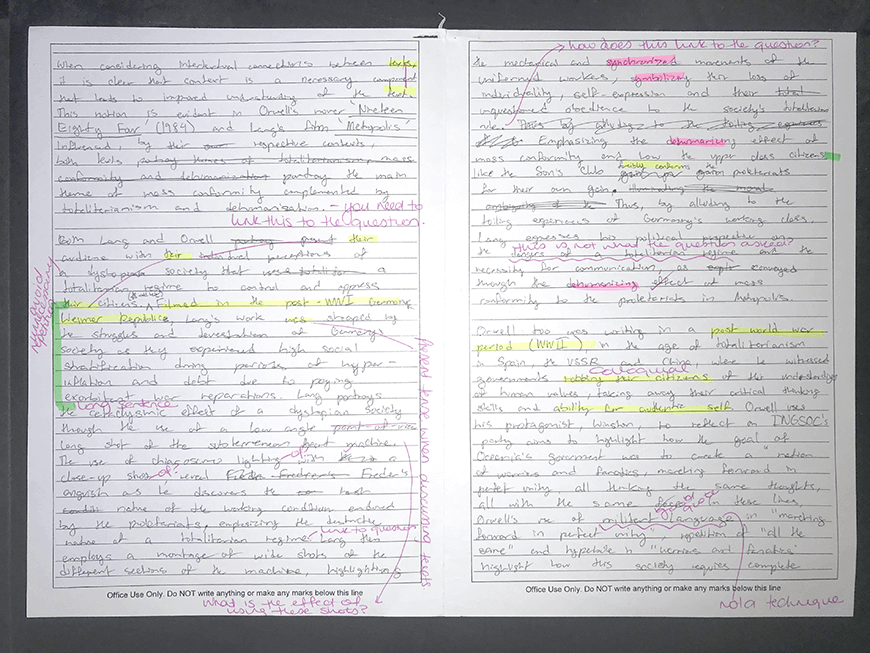 When considering intertextual connections between texts,
it is clear that context is a necessary component
that leads to improved understanding of the text.
This notion is evident in Orwell's novel 'Nineteen
Eighty Four' (1984) and Lang's film 'Metropolis'
Influenced, by their respective contexts,
both texts, portray themes of totalitarianism, mass
conformity and dehumanisation portray the main
theme of mass conformity complemented by
totalitarianism and dehumanisation. - you need to
link this to the question.
Both Lang and Orwell their
audience with their individual perceptions of
a dystopian society that
totalitarian regime to control and oppress
their citizens. Filmed in the post-WWI Germany,
Weimar Republic, Lang's work was shaped by
the struggles and devastation of Germany's
society as they experienced high social
stratification during periods of hyper-
inflation and debt due to paying
exorbitant war reparations. Lang portrays
Long sentence
the cataclysmic effect of a dystopian society
through the use of a low angle point-of-view
long shot of the subterranean heart machine.
The use of chiaroscuro lighting with
of?
close-up shot reveal Freder's
of?
anguish as he discovers the
nature of the working condition endured
by the proletariats, emphasizing the destructive
nature of a totalitarian regime. Lang then
link to question
employs a montage of wide shots of the
different sections of the machine, highlighting
Office Use Only. Do NOT write anything or make any marks below this line
What is the effect of
using these shots?
tense when discussing texts
how does this link to the question?
the mechanical and synchronized movements of the
uniformed workers, symbolizing their loss of
individuality, self-expression and their
unquestioned obedience to the society's totalitarian
rule. Thus by alluding to the toiling experiences
Emphasizing the dehumanising effect of
mass conformity and how the upper class citizens
like the Son's Club proletariats
for their own gain. Thus, by alluding to the
toiling experiences of Germany's working class,
Lang expresses his political perspective on
this is not what the question asked?
the dangers of a totalitarian regime and the
necessity for communication, as conveyed
through the dehumanizing effect of mass
conformity to the proletariats in Metropolis.
Orwell too was writing in a post world war
period (WWII) in the age of totalitarianism
in Spain, the USSR and China, where he witnessed
colloquial
governments robbing their citizens of their understandings
of human values, taking away their critical thinking
skills and ability for authentic self. Orwell uses
his protagonist, Winston, to reflect on INGSOC's
party aims to highlight how the goal of
Oceania's government was to create a "nation
of warriors and fanatics, marching forward in
perfect unity, all thinking the same thoughts,
all with the same face". In these lines,
Orwell's use of militant language in "marching
forward in perfect unity", repetition of "all the
same" and hyperbole in "warriors and fanatics"
highlight how this society requires complete
Office Use Only. Do NOT write anything or make any marks below this line
not a technique